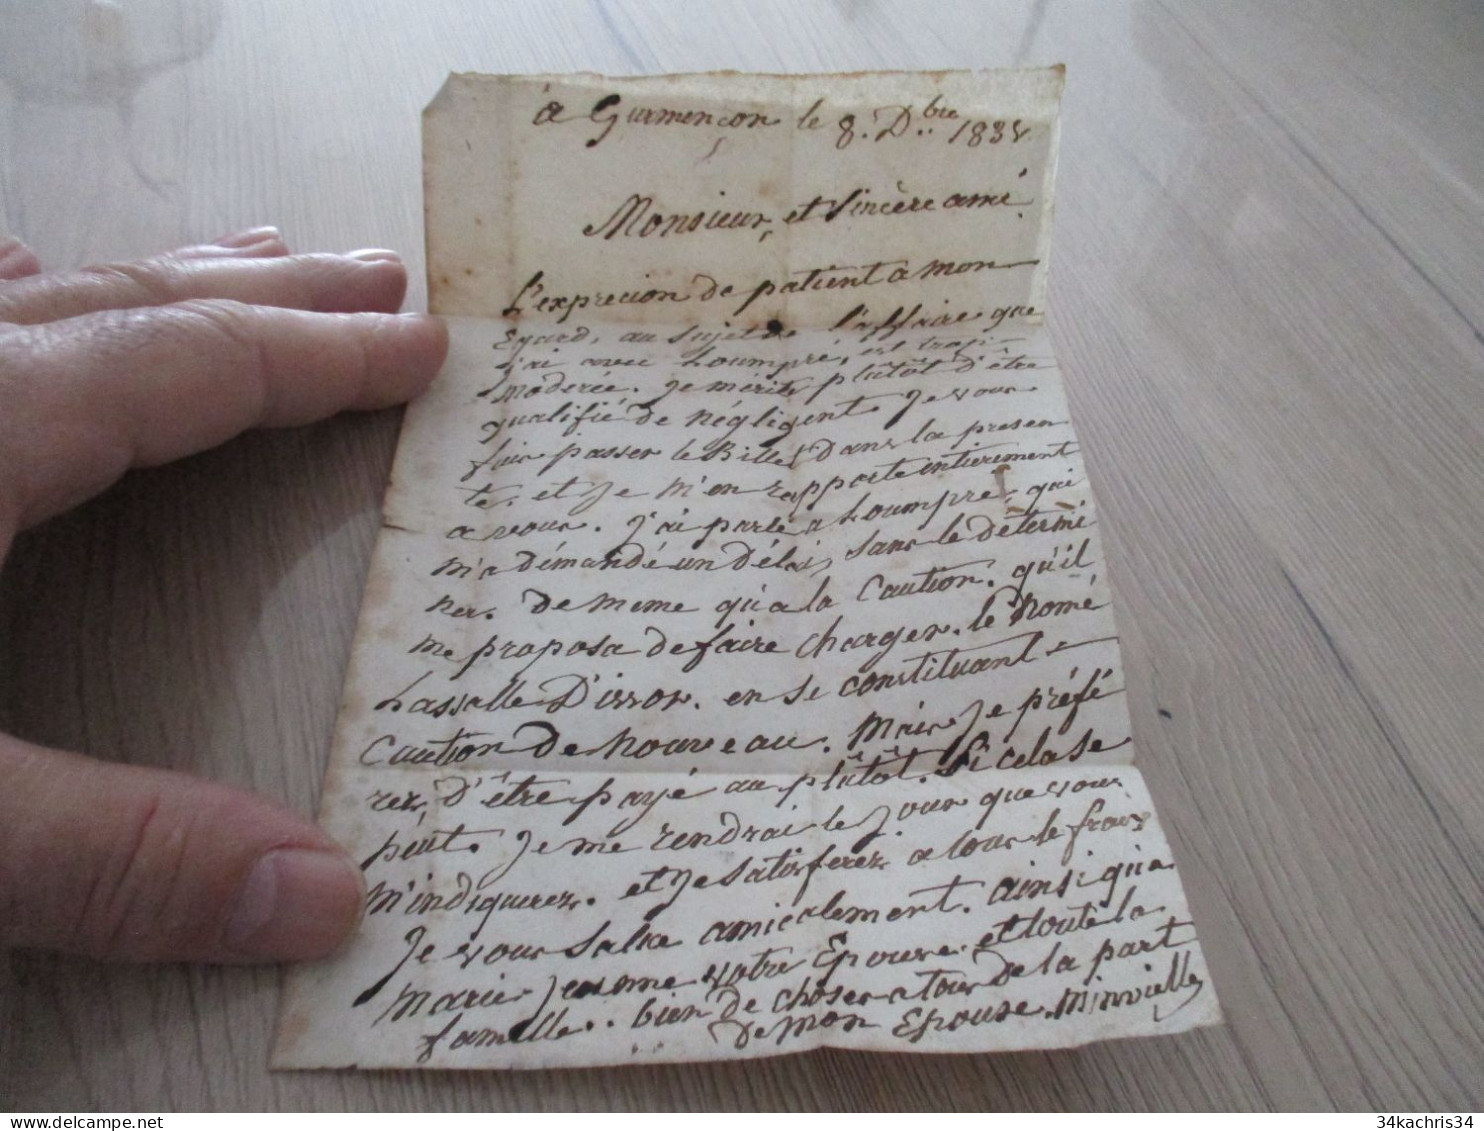 à Gurmençon le 8. Dbre 1838
Monsieur, et Sincère amé.
L'exprecion de patient à mon
Egard, au Sujet de l'affaire que
j'ai avec Loumpré, est trop
móderée. Je mérite plûtôt d'être
qualifié de négligent. Je vous
fais passer le Billet Dans la presen
te. et Je m'en rapporte entierement
a vous. J'ai parlé a Loumpré, qui
m'a démandé un Délai, sans le détermi
ner. De meme qu'a la Caution. qu'il
me proposa de faire charger. le nomé
Lassalle D'issor. en Se constituant
Caution De nouveau. Mais Je préfé
rez, D'être payé au plûtôt. Si cela se
peut. Je me rendrai le jour que vous
m'indiquerez. et Je Satisferez a tous le frais
Je vous Salue amicalement. ainsi qu'a
Marie Jeanne votre Epouse. et toute la
famille. bien De choses a tous De la part
De mon Epouse. Minvielle
34kachris34
delcampe.net